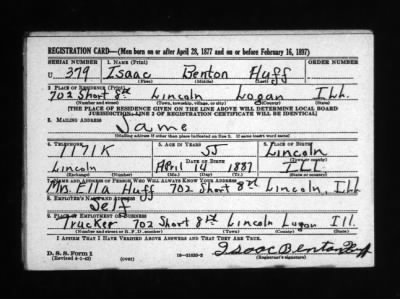 REGISTRATION CARD—(Men born on or after April 28, 1877 and on or before February 16, 1897)
SERIAL NUMBER 1. NAME (Print) ORDER NUMBER
U 379 Isaac Benton Huff
(First) (Middle) (Last)
2. PLACE OF RESIDENCE (Print)
702 Short 8th Lincoln Logan Ill.
(Number and street) (Town, township, village, or city) (County) (State)
[THE PLACE OF RESIDENCE GIVEN ON THE LINE ABOVE WILL DETERMINE LOCAL BOARD
JURISDICTION; LINE 2 OF REGISTRATION CERTIFICATE WILL BE IDENTICAL]
3. MAILING ADDRESS
Same
[Mailing address if other than place indicated on line 2. If same insert word same]
4. TELEPHONE 5. AGE IN YEARS 6. PLACE OF BIRTH
1171K 55 Lincoln
DATE OF BIRTH
Lincoln April 14 1887 Ill.
7. NAME AND ADDRESS OF PERSON WHO WILL ALWAYS KNOW YOUR ADDRESS
Mrs. Ella Huff 702 Short 8th Lincoln, Ill
8. EMPLOYER'S NAME AND ADDRESS
Self
9. PLACE OF EMPLOYMENT OR BUSINESS
Trucker 702 Short 8th Lincoln Logan Ill.
(Number and street or R. F. D. number) (Town) (County) (State)
I AFFIRM THAT I HAVE VERIFIED ABOVE ANSWERS AND THAT THEY ARE TRUE.
D. S. S. Form 1
(Revised 4-1-42) (over) Isaac Benton Huff
(Registrant's signature)